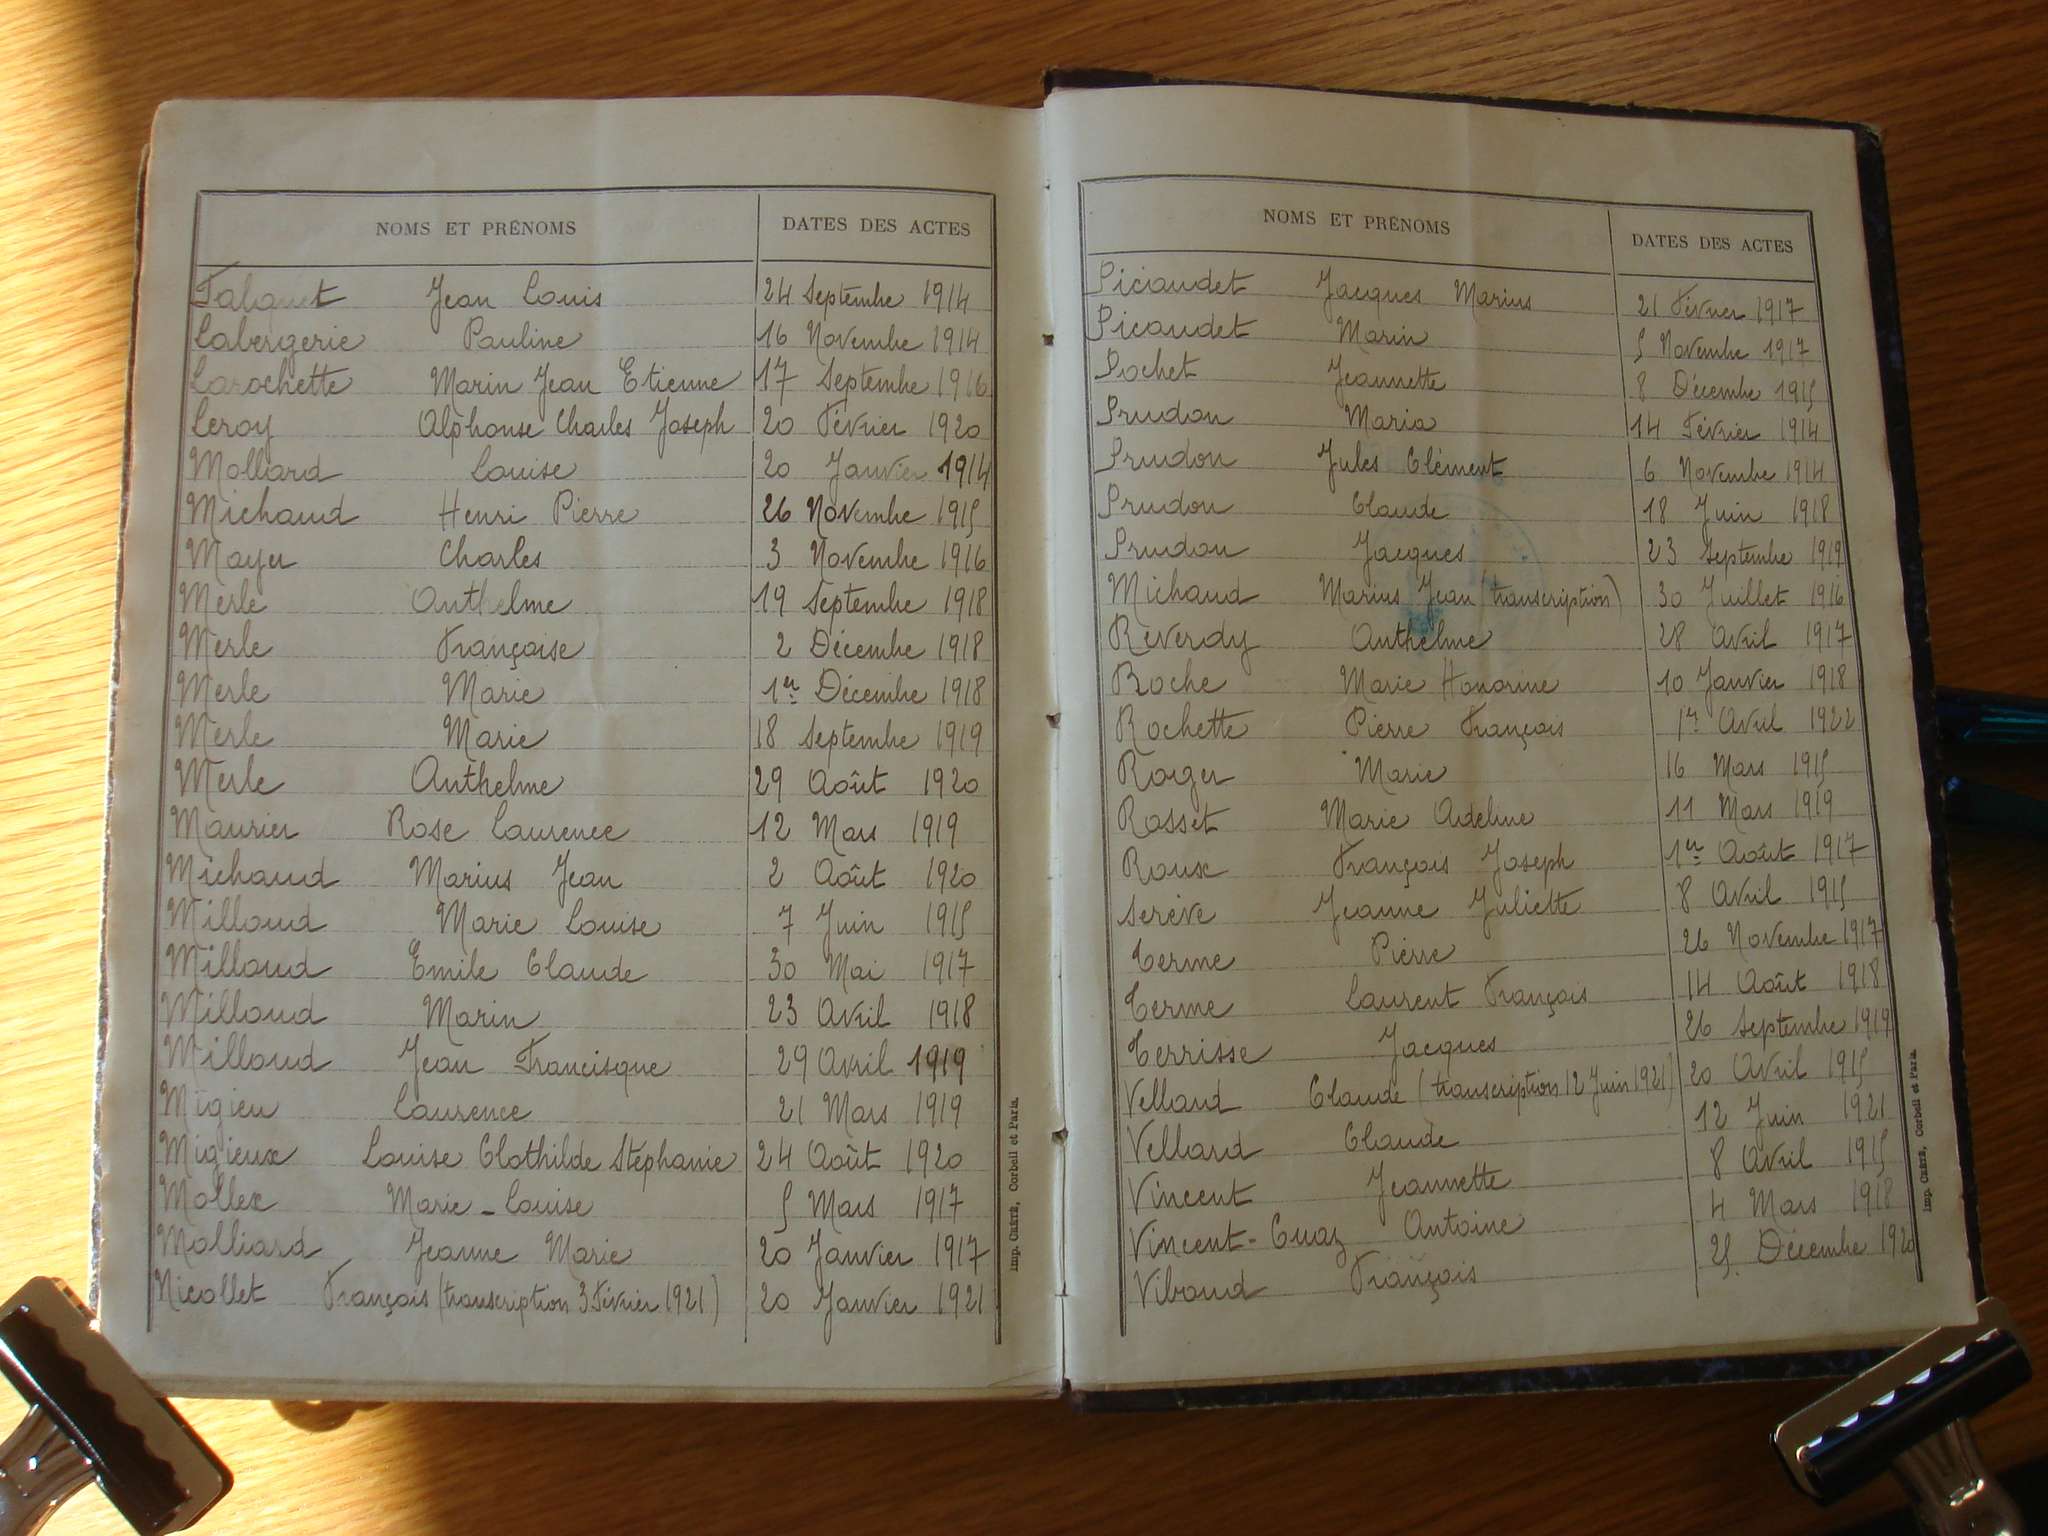 NOMS ET PRÉNOMS DATES DES ACTES
Jean Louis 24 Septembre 1914
Labergerie Pauline 16 Novembre 1914
Larochette Marin Jean Etienne 17 Septembre 1916
Leroy Alphonse Charles Joseph 20 Février 1920
Mollard Louise 20 Janvier 1914
Michaud Henri Pierre 26 Novembre 1915
Mayer Charles 3 Novembre 1916
Merle Anthelme 19 Septembre 1918
Merle Françoise 2 Décembre 1918
Merle Marie 1er Décembre 1918
Merle Marie 18 Septembre 1919
Merle Anthelme 29 Août 1920
Maurier Rose Laurence 12 Mars 1919
Michaud Marius Jean 2 Août 1920
Milloud Marie Louise 7 Juin 1915
Milloud Emile Claude 30 Mai 1917
Milloud Marin 23 Avril 1918
Milloud Jean Francisque 29 Avril 1919
Migieu Laurence 21 Mars 1919
Migieux Louise Clothilde Stephanie 24 Août 1920
Mollex Marie-Louise 5 Mars 1917
Molliard Jeanne Marie 20 Janvier 1917
Nicollet François (transcription 3 Février 1921) 20 Janvier 1921
Imp. CRÉTÉ, Corbeil et Paris.
NOMS ET PRÉNOMS DATES DES ACTES
Picaudet Jacques Marius 21 Février 1917
Picaudet Marin 5 Novembre 1917
Pochet Jeannette 8 Décembre 1915
Prudon Maria 14 Février 1914
Prudon Jules Clément 6 Novembre 1914
Prudon Claude 18 Juin 1918
Prudon Jacques 23 Septembre 1919
Michaud Marius Jean (transcription) 30 Juillet 1916
Reverdy Anthelme 28 Avril 1917
Roche Marie Honorine 10 Janvier 1918
Rochette Pierre François 1er Avril 1922
Roger Marie 16 Mars 1915
Rosset Marie Adeline 11 Mars 1919
Roux François Joseph 1er Août 1917
Serève Jeanne Juliette 8 Avril 1915
Terme Pierre 26 Novembre 1917
Terme Laurent François 14 Août 1918
Terrisse Jacques 26 Septembre 1919
Velland Claude (transcription 12 Juin 1921) 20 Avril 1915
Velland Claude 12 Juin 1921
Vincent Jeannette 8 Avril 1915
Vincent-Cuaz Antoine 4 Mars 1918
Viboud François 25 Décembre 1920
Imp. CRÉTÉ, Corbeil et Paris.